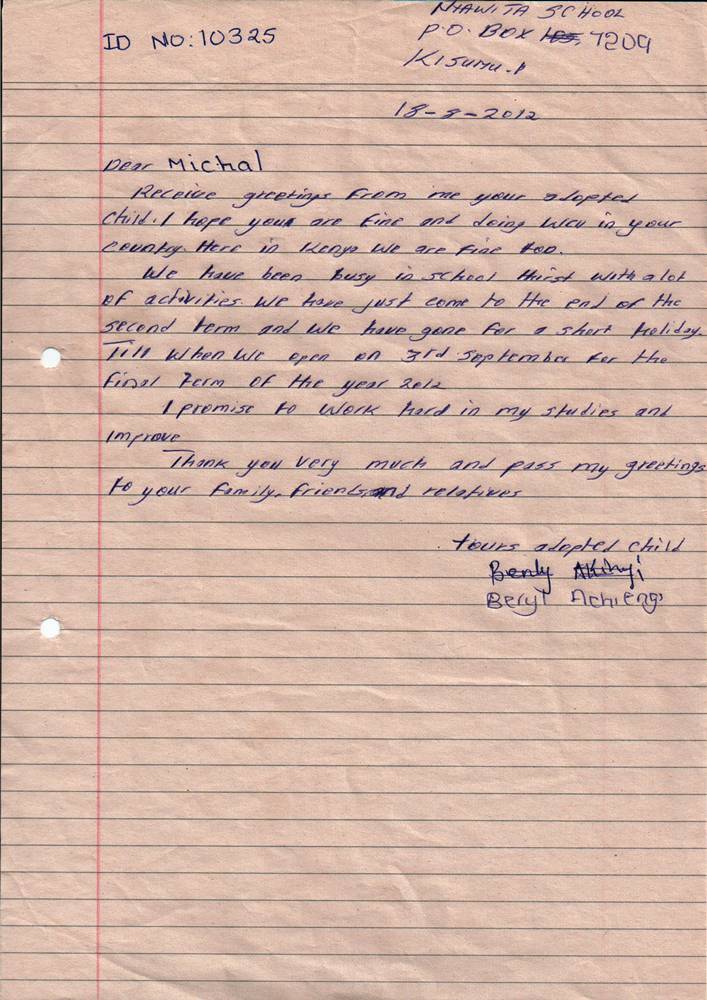 NYAWITA SCHOOL
ID NO: 10325
P.O. BOX 7209
KISUMU.
18-8-2012
Dear Michal
Receive greetings from me your adopted
child. I hope your are fine and doing well in your
country. Here in Kenya we are fine too.
We have been busy in school thirst with a lot
of activities. We have just come to the end of the
second term and we have gone for a short holiday.
Till when we open on 3rd September for the
final term of the year 2012
I promise to work hard in my studies and
improve
Thank you very much and pass my greetings
to your family, friends and relatives
Yours adopted child
Benly Akinyi
Beryl Achieng'